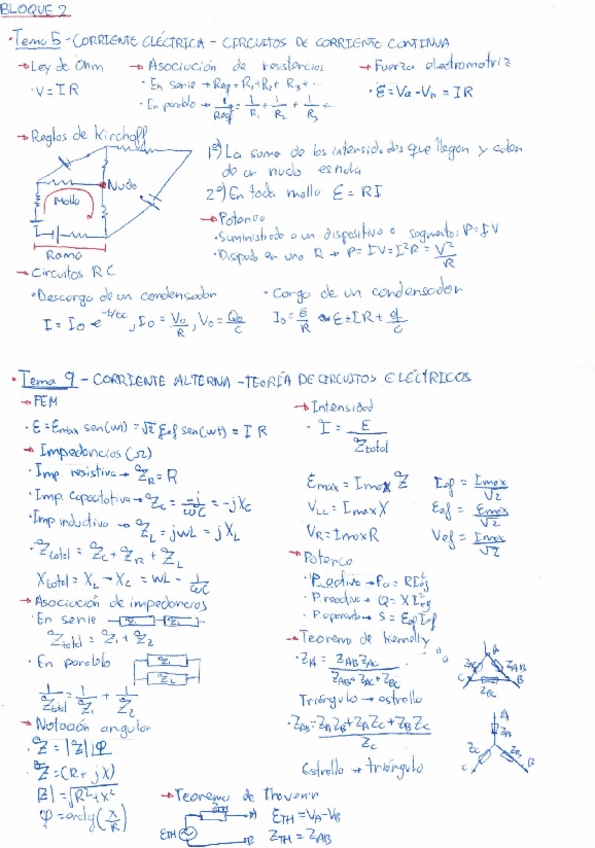 BLOQUE 2
· Tema 5 - CORRIENTE ELÉCTRICA - CIRCUITOS DE CORRIENTE CONTINUA
→ Ley de Ohm
· V = I R
→ Asociación de resistencias
· En serie → Req = R1 + R2 + R3 + ...
· En paralelo → 1/Req = 1/R1 + 1/R2 + 1/R3 ...
→ Fuerza electromotriz
· Ɛ = Va - Vb = IR
→ Reglas de Kirchoff
Nudo
Malla
Rama
1º) La suma de las intensidades que llegan y salen
de un nudo es nula
2º) En toda malla Ɛ = RI
→ Potencia
· Suministrada a un dispositivo o segmento: P = IV
· Disipada en una R → P = IV = I²R = V²/R
→ Circuitos RC
· Descarga de un condensador
I = I0 · e^-t/RC, I0 = V0/R, V0 = Q0/C
· Carga de un condensador
I0 = Ɛ/R Ɛ = IR + q/C
· Tema 9 - CORRIENTE ALTERNA - TEORÍA DE CIRCUITOS ELÉCTRICOS
→ FEM
· Ɛ = Ɛmax sen(wt) = √2 Ɛef sen(wt) = I R
→ Impedancias (Ω)
· Imp. resistiva → ZR = R
· Imp. capacitativa → ZC = -j/wC = -jXC
· Imp inductiva → ZL = jwL = jXL
· Ztotal = ZC + ZR + ZL
Xtotal = XL - XC = wL - 1/wC
→ Asociación de impedancias
· En serie
Z1
Z2
Ztotal = Z1 + Z2
· En paralelo
Z1
Z2
1/Ztotal = 1/Z1 + 1/Z2
→ Notación angular
· Z = |Z| φ
· Z = (R + jX)
|Z| = √R² + X²
φ = arctg (X/R)
→ Intensidad
· I = Ɛ/Ztotal
Ɛmax = Imax Z
VLC = Imax X
VR = Imax R
Ief = Imax/√2
Ɛef = Ɛmax/√2
Vef = Imax/√2
→ Potencia
· P.activa → Pa = RI²ef
· P.reactiva → Q = XI²ef
· P.aparente → S = Ɛef Ief
→ Teorema de Kennelly
· ZA = ZAB ZAC / ZAB + ZAC + ZBC
Triángulo → estrella
· ZAB = ZA ZB + ZA ZC + ZB ZC / ZC
Estrella → triángulo
A
ZAC
ZAB
C
B
ZBC
A
ZA
ZC
ZB
C
B
→ Teorema de Thevenin
ZTH
A
ETH
B
ETH = VA - VB
ZTH = ZAB